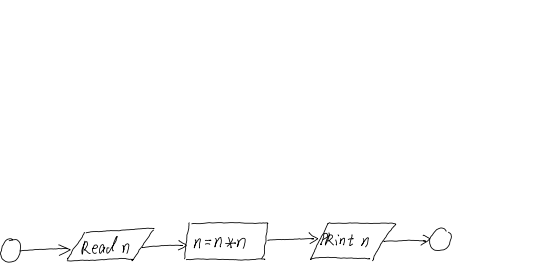 Read n
n=n*n
PRint n